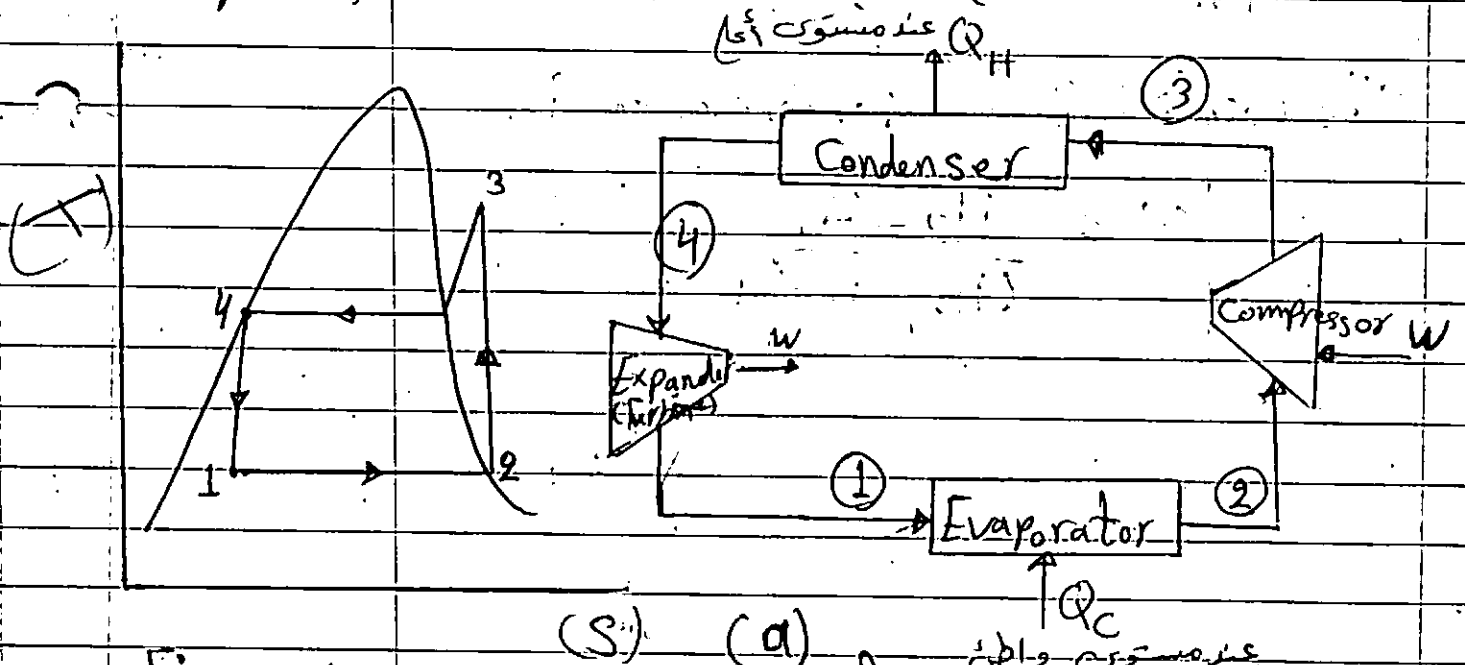 عند مستوى أعلى Q_H
3
Condenser
(T)
3
4
4
Compressor W
W
1
2
1
2
Evaporator
Q_C
(S) (a)
عند مستوى واطئ